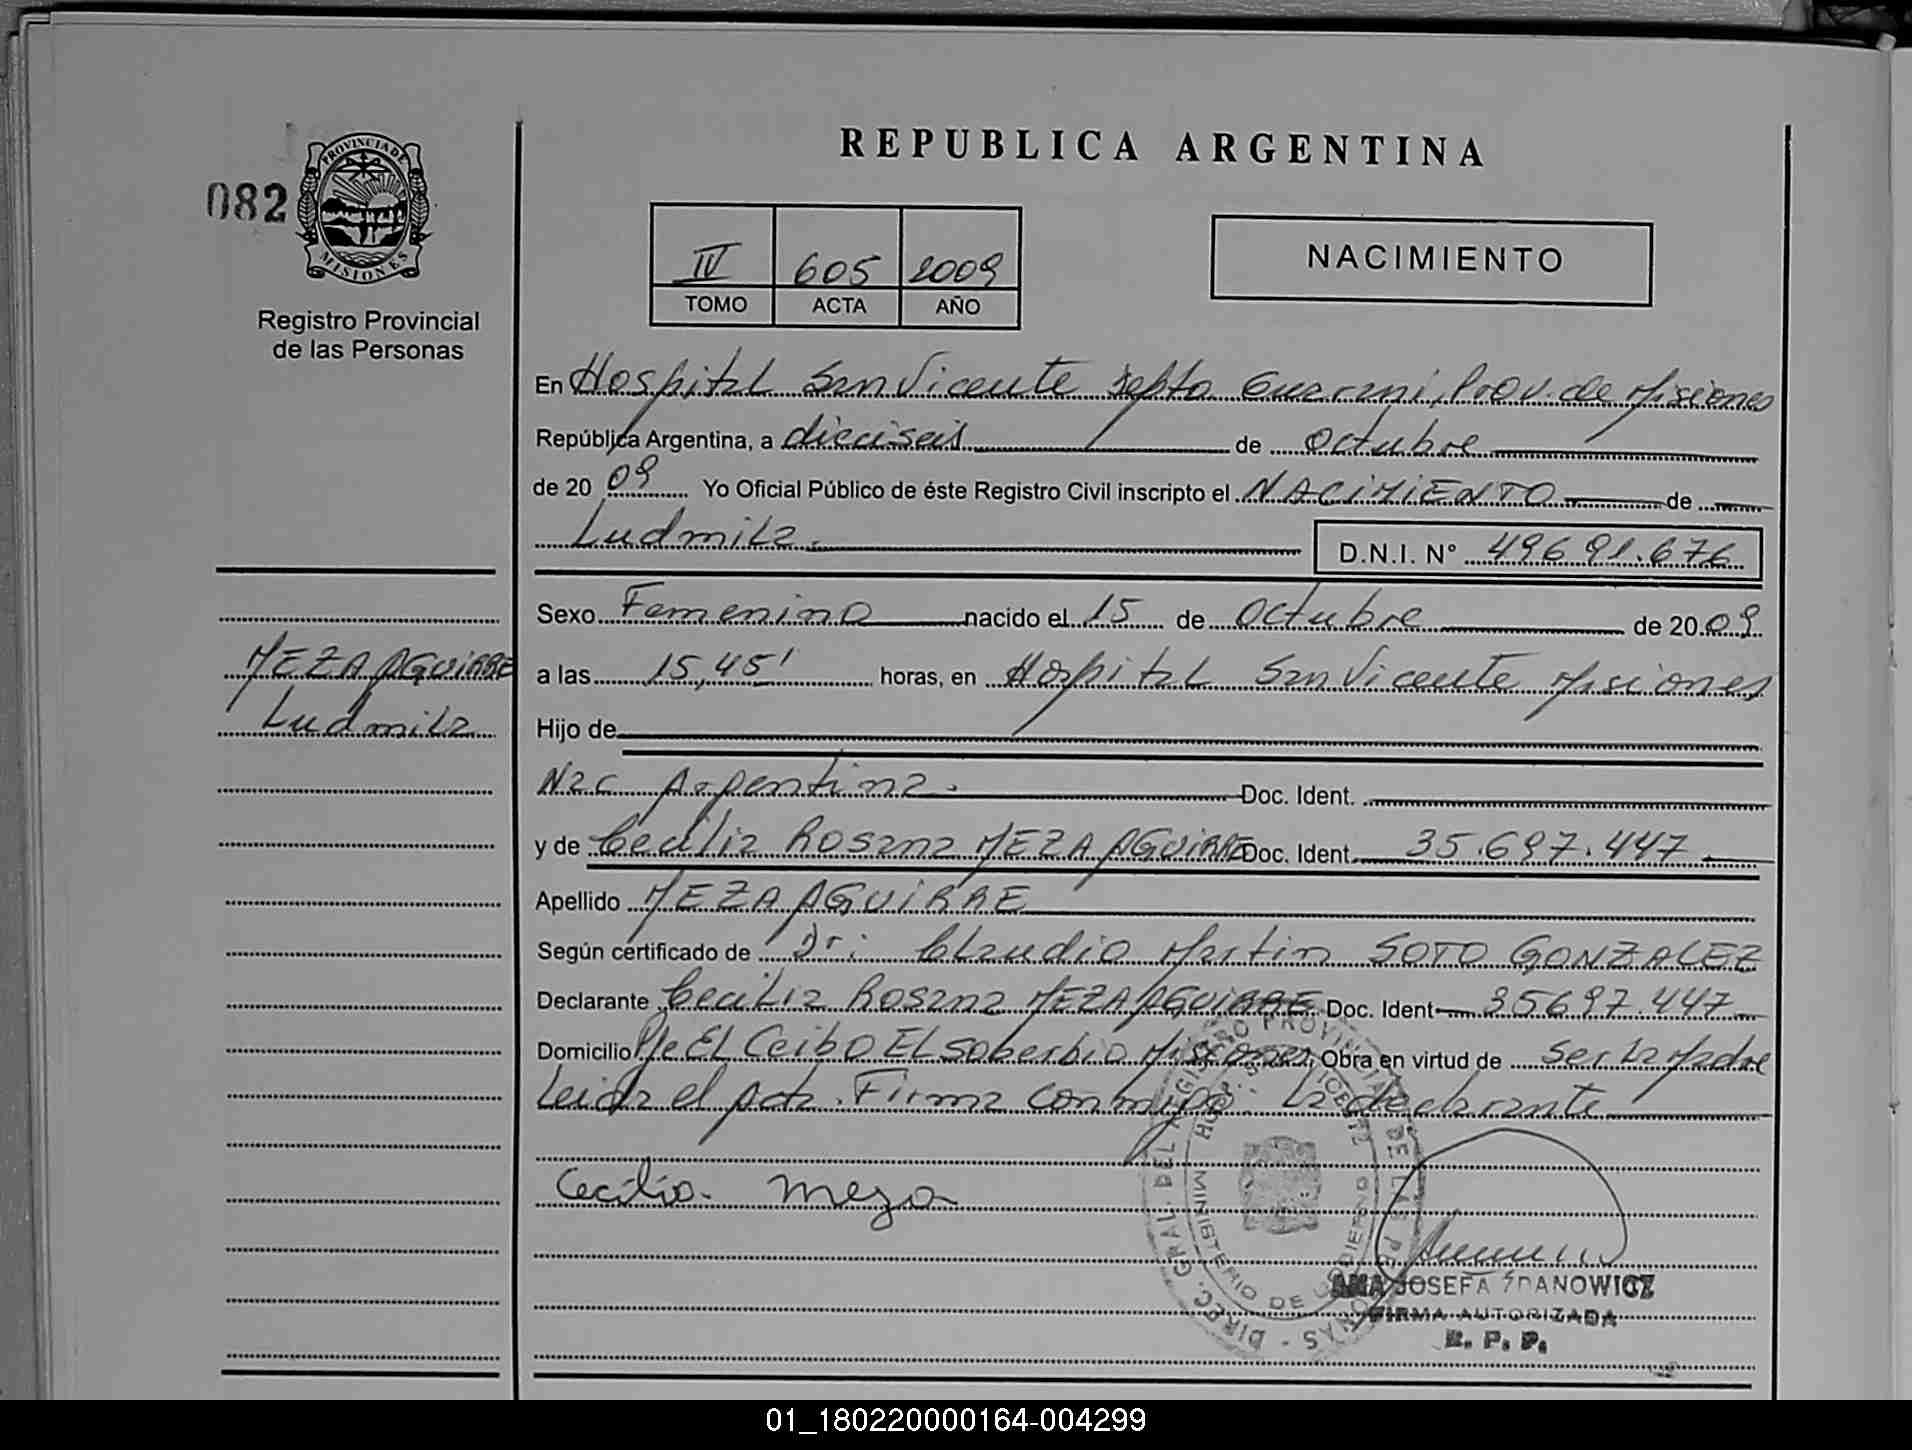 REPUBLICA ARGENTINA
082
PROVINCIA DE
MISIONES
Registro Provincial
de las Personas
IV 605 2009
TOMO ACTA AÑO
NACIMIENTO
En Hospital San Vicente Depto Guarani, Prov. de Misiones
República Argentina, a dieciseis de octubre
de 20 09 Yo Oficial Público de éste Registro Civil inscripto el NACIMIENTO de
Ludmila.
D.N.I. N° 49691.676
Sexo Femenino nacido el 15 de octubre de 20 09
MEZA AGUIRRE
Ludmila
a las 15,45' horas, en Hospital San Vicente Misiones
Hijo de
Nac Argentina. Doc. Ident.
y de Cecilia Rosana MEZA AGUIRRE Doc. Ident. 35.697.447
Apellido MEZA AGUIRRE
Según certificado de Dr: Claudio Martin SOTO GONZALEZ
Declarante Cecilia Rosana MEZA AGUIRRE Doc. Ident 35697.447
Domicilio Pje El Ceibo El Soberbio Misiones, Obra en virtud de ser la Madre
Leida el Acta. Firma conmigo: La declarante
Cecilia Meza
DIREC. GRAL. DEL REGISTRO PROVINCIAL DE LAS PERSONAS -
HOSP. S. VICENTE
MINISTERIO DE GOBIERNO
ANA JOSEFA ZDANOWICZ
FIRMA AUTORIZADA
R. P. P.
01_180220000164-004299